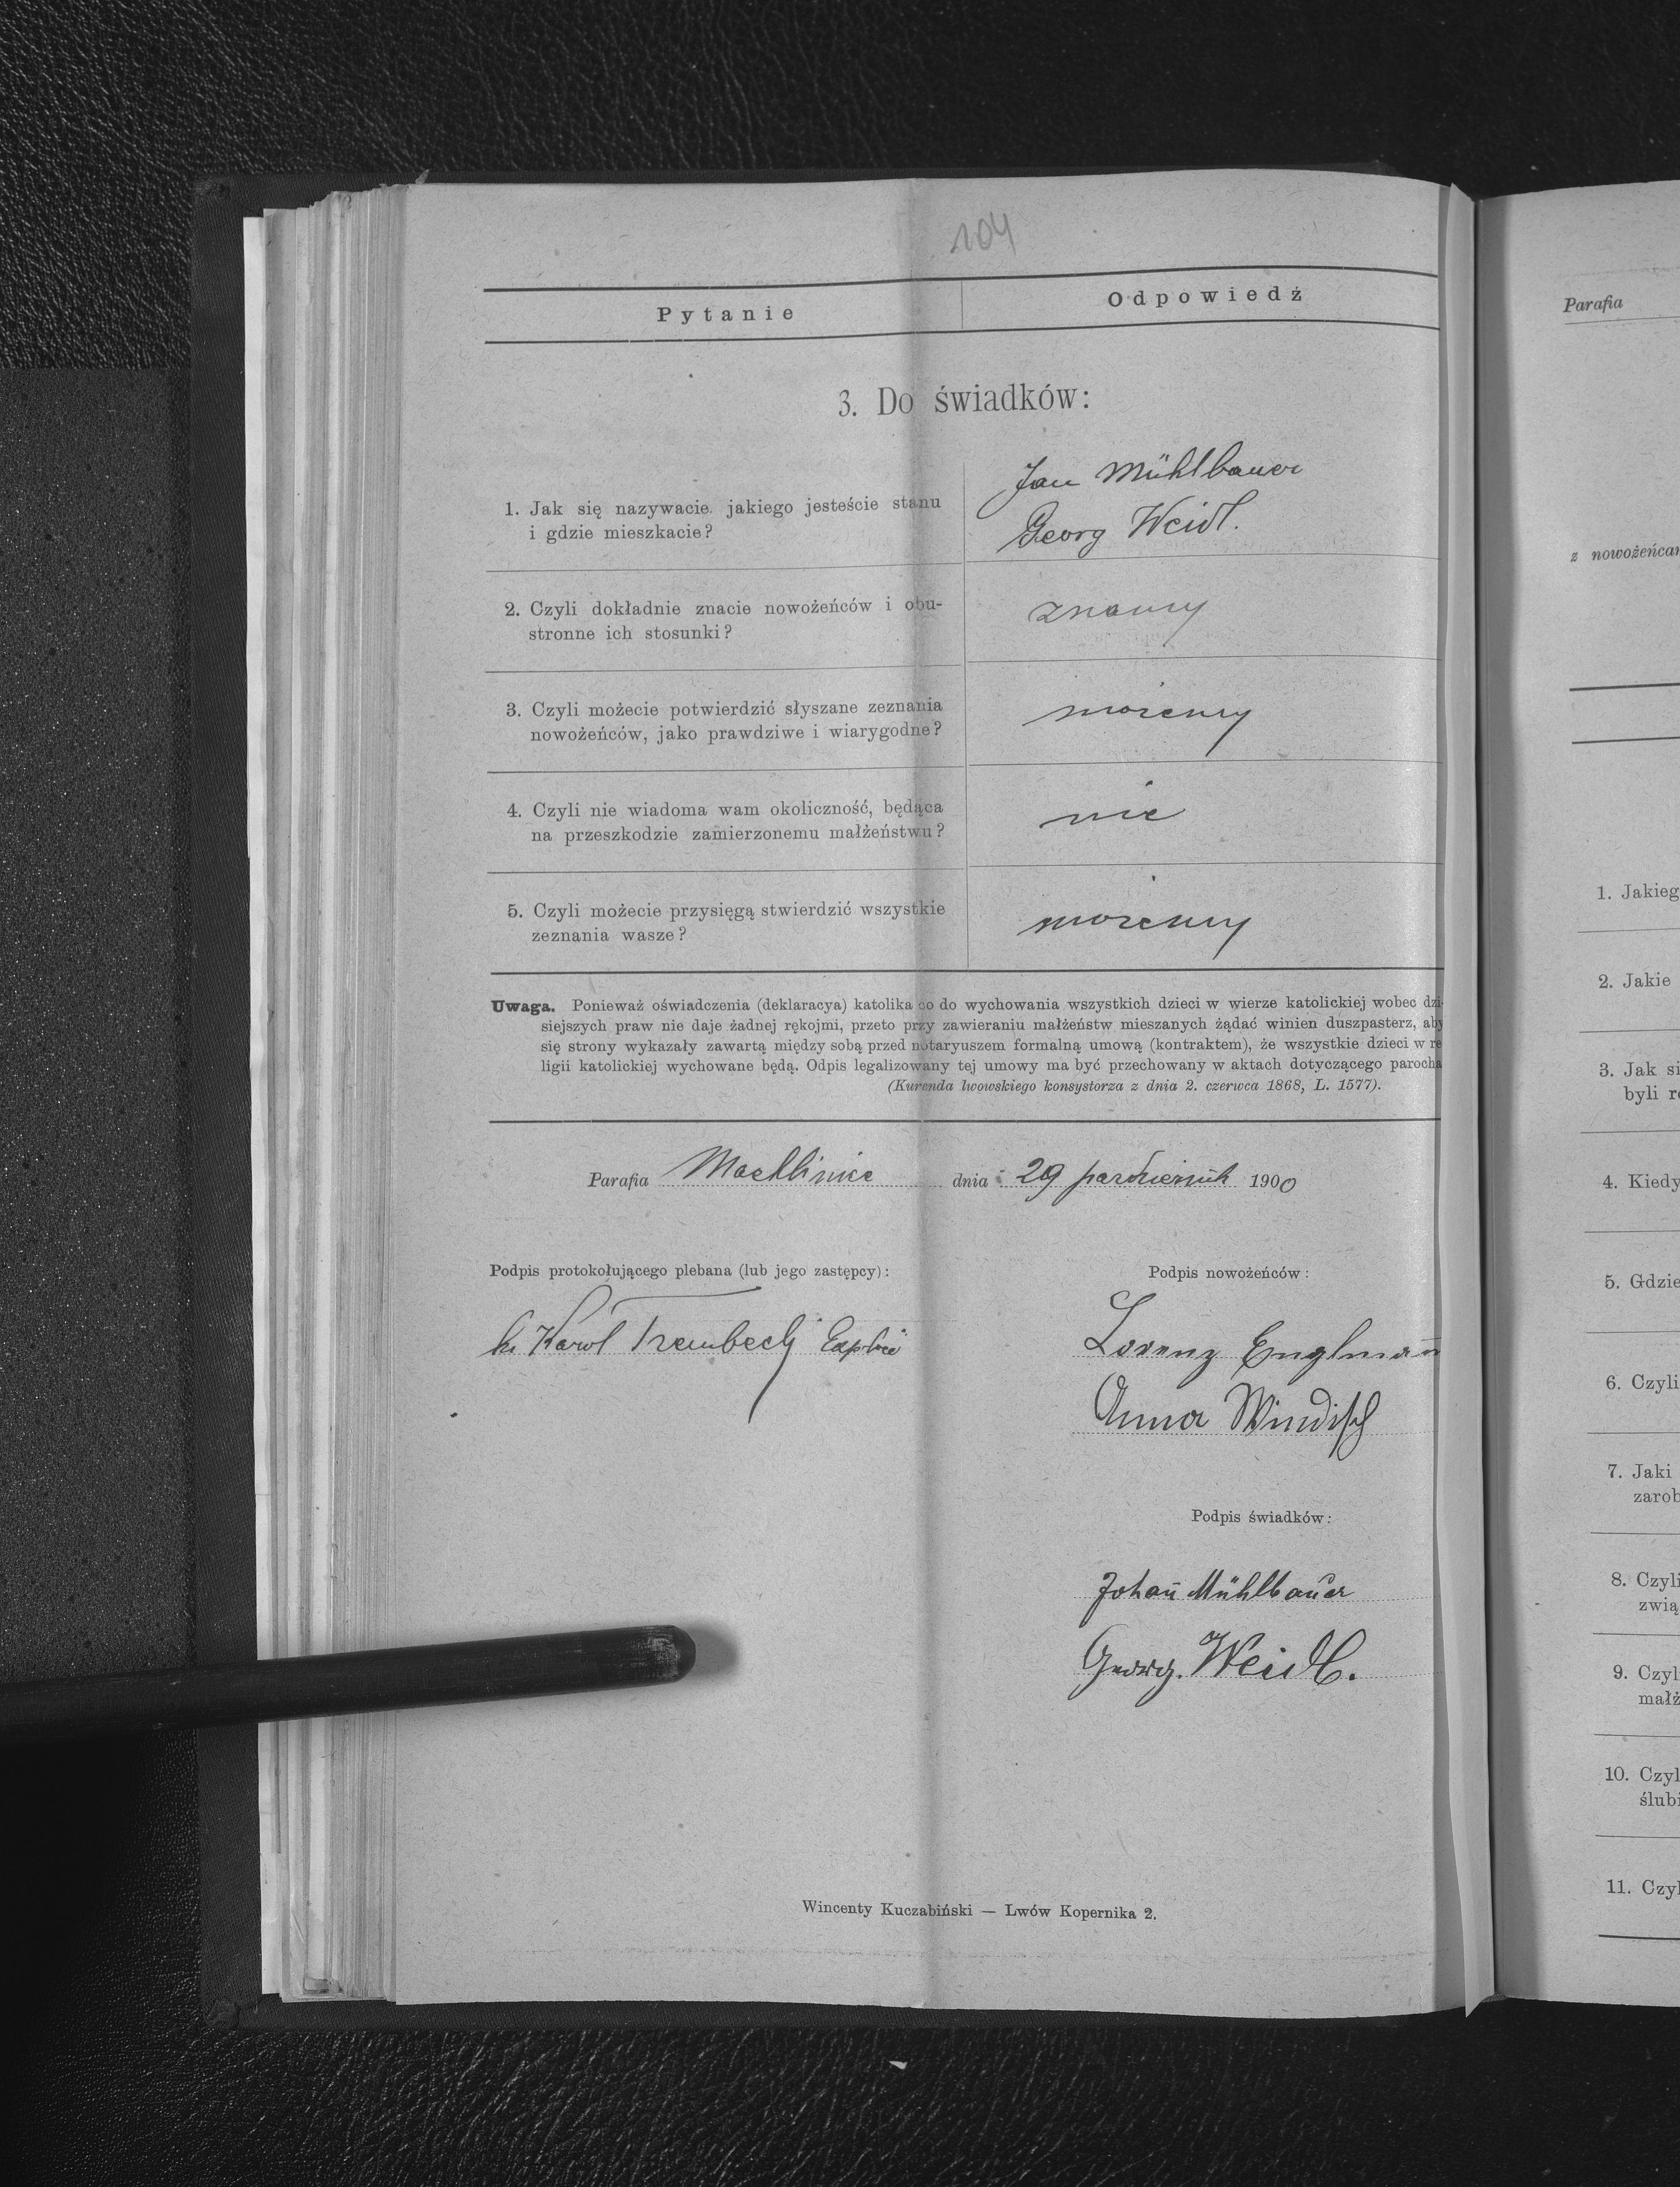 104
Pytanie
Odpowiedź
3. Do świadków:
1. Jak się nazywacie. jakiego jesteście stanu
i gdzie mieszkacie?
Jan Mühlbauer
Georg Weidl.
2. Czyli dokładnie znacie nowożeńców i obu-
stronne ich stosunki?
znamy
3. Czyli możecie potwierdzić słyszane zeznania
nowożeńców, jako prawdziwe i wiarygodne?
możemy
4. Czyli nie wiadoma wam okoliczność, będąca
na przeszkodzie zamierzonemu małżeństwu?
nie
5. Czyli możecie przysięgą stwierdzić wszystkie
zeznania wasze?
możemy
Uwaga. Ponieważ oświadczenia (deklaracya) katolika co do wychowania wszystkich dzieci w wierze katolickiej wobec dzi-
siejszych praw nie daje żadnej rękojmi, przeto przy zawieraniu małżeństw mieszanych żądać winien duszpasterz, aby
się strony wykazały zawartą między sobą przed notaryuszem formalną umową (kontraktem), że wszystkie dzieci w re
ligii katolickiej wychowane będą. Odpis legalizowany tej umowy ma być przechowany w aktach dotyczącego parocha
(Kurenda lwowskiego konsystorza z dnia 2. czerwca 1868, L. 1577).
Parafia Machlinice dnia 29 październik 1900
Podpis protokołującego plebana (lub jego zastępcy):
Podpis nowożeńców:
ks Karol Trembecki
Lorenz Englman̄
Anna Windisch
Podpis świadków:
Johan̄ Mühlbauer
Georg. Weidl.
Wincenty Kuczabiński — Lwów Kopernika 2.
Parafia
z nowożeńcam
1. Jakieg
2. Jakie
3. Jak si
byli r
4. Kiedy
5. Gdzie
6. Czyli
7. Jaki
zarob
8. Czyli
zwią
9. Czyl
małż
10. Czyl
ślubi
11. Czyl